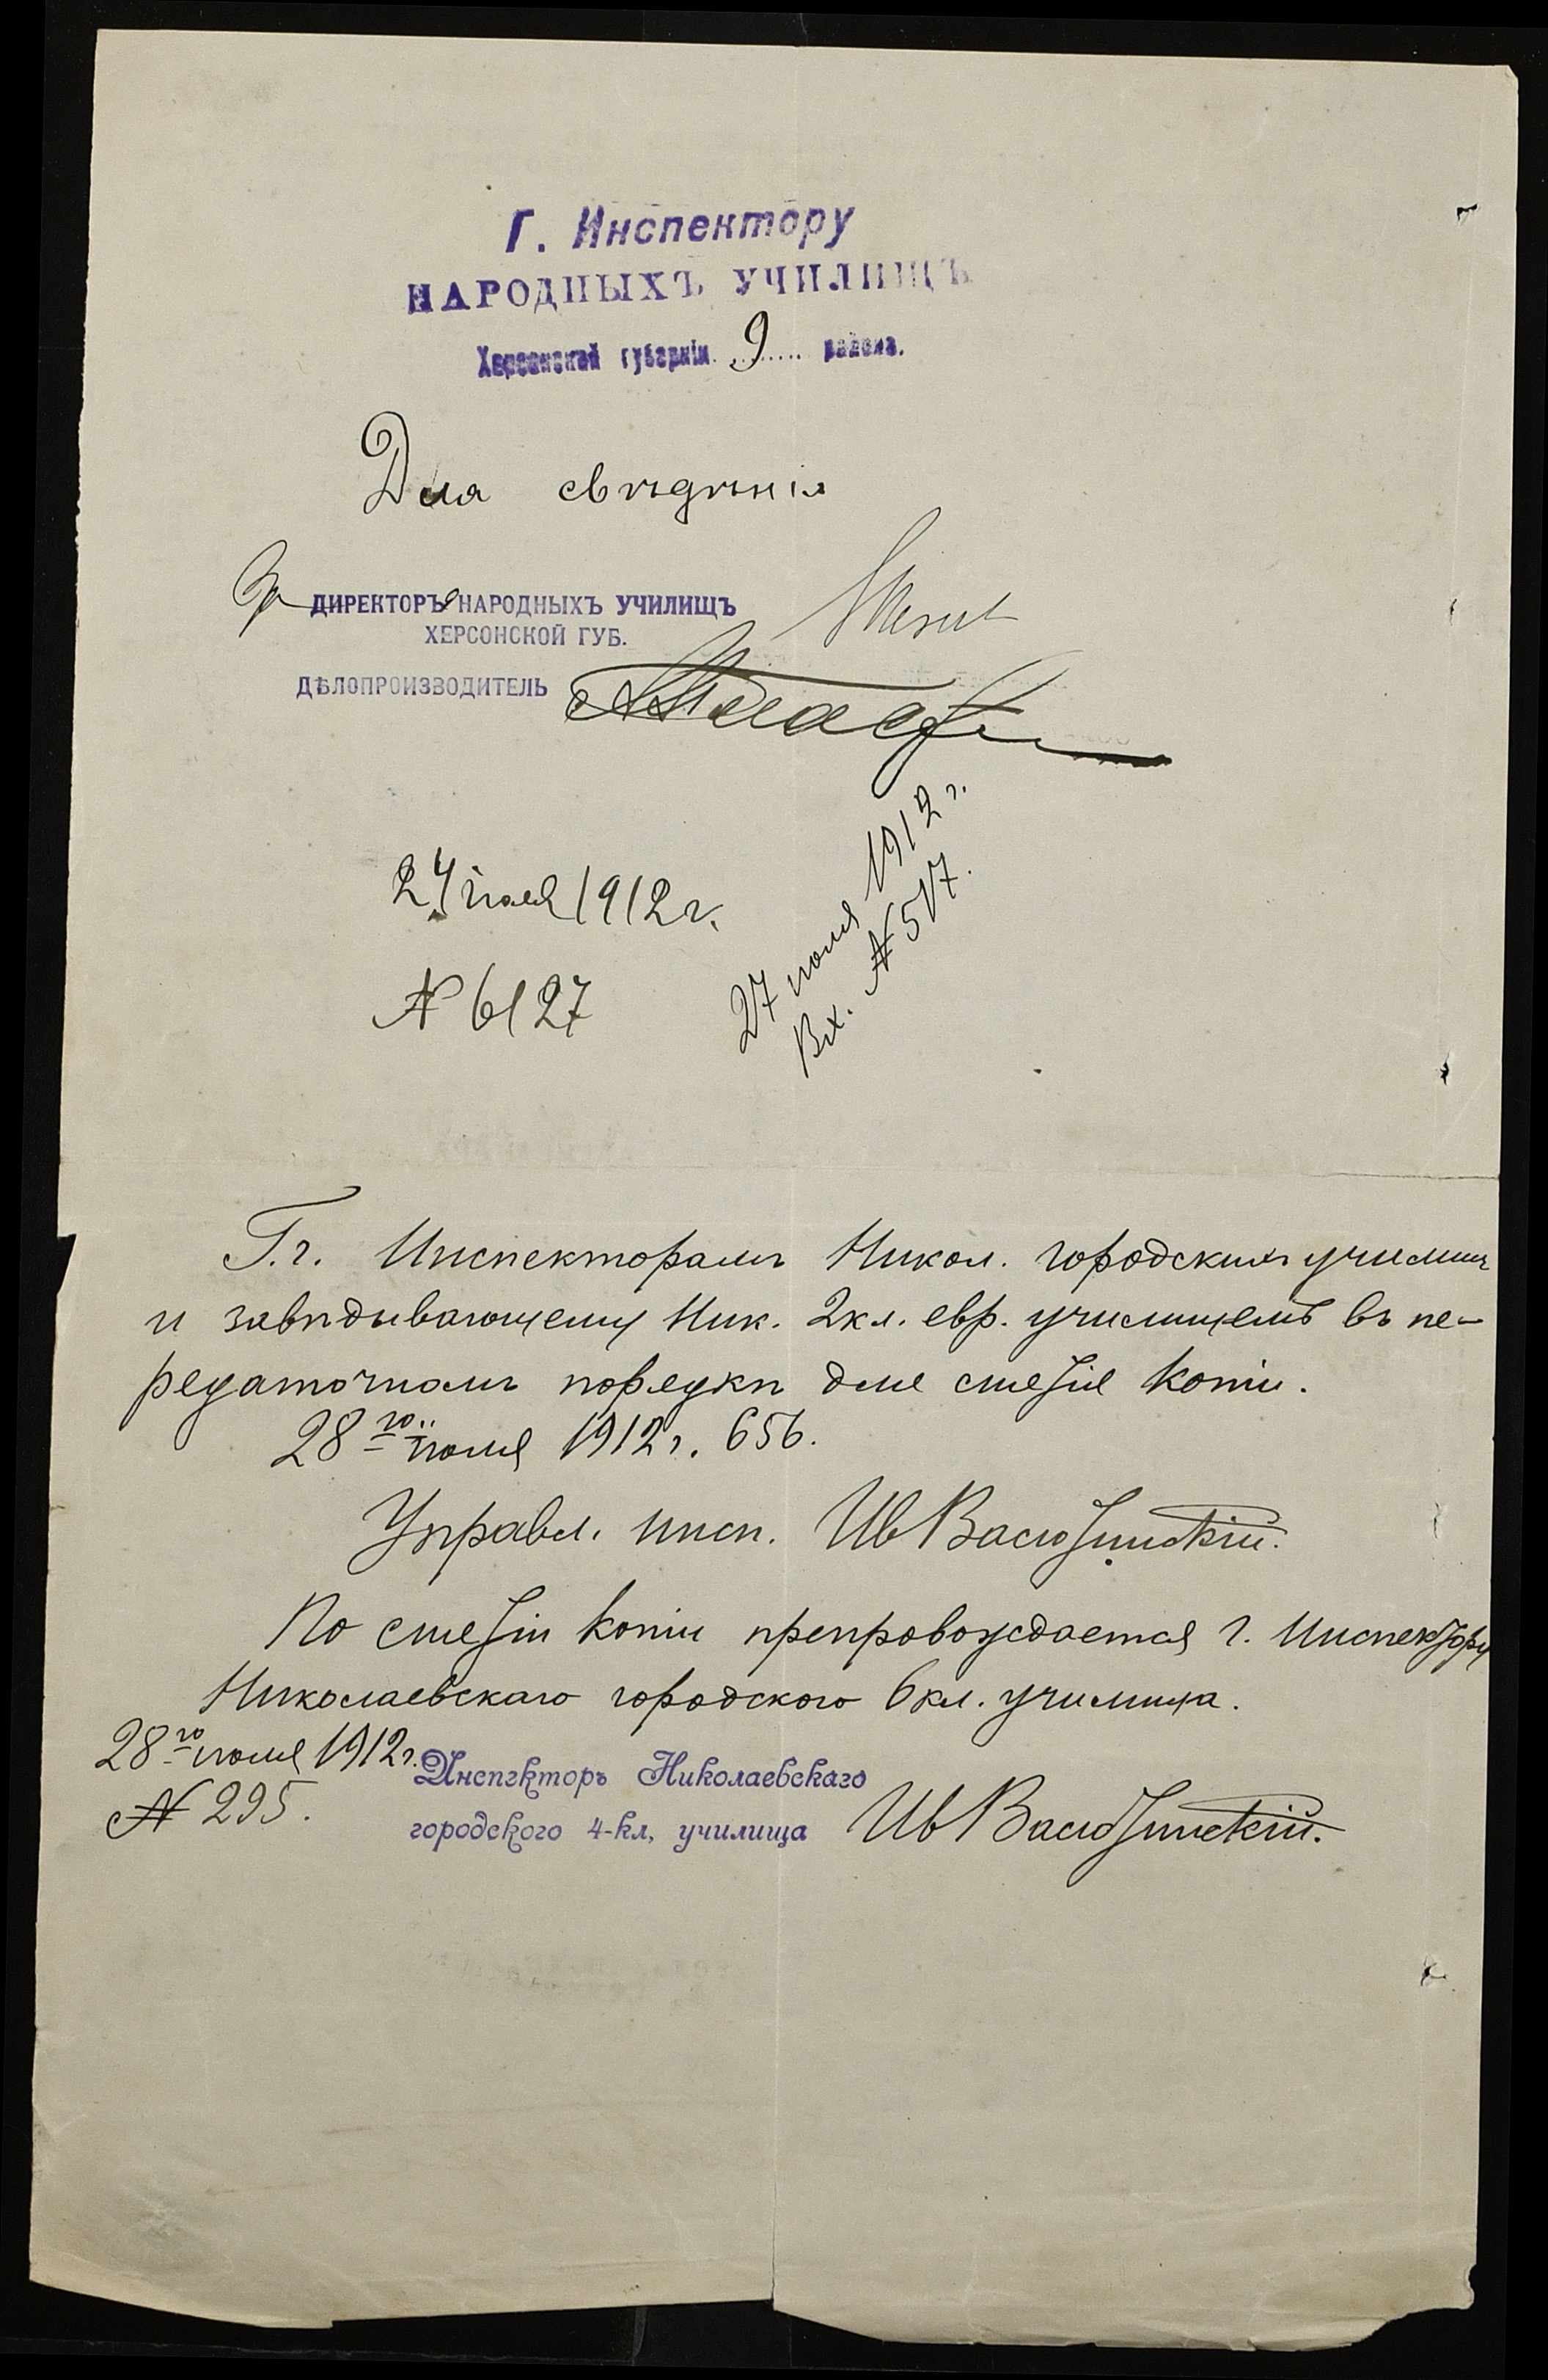 Г. Инспектору
НАРОДНЫХЪ УЧИЛИЩЪ
Херсонской губерніи 9 района.
Для свѣдѣнія
За ДИРЕКТОРЪа НАРОДНЫХЪ УЧИЛИЩЪ
ХЕРСОНСКОЙ ГУБ.
ДѢЛОПРОИЗВОДИТЕЛЬ
24 іюля 1912 г.
№ 6127
27 іюля 1912 г.
Вх. № 517.
Г.г. Инспекторамъ Никол. городскихъ училищъ
и завѣдывающему Ник. 2 кл. евр. училищемъ въ пе-
редаточномъ порядкѣ для снятія копіи.
28го іюля 1912 г. 656.
Управл. инсп. Ив Васютинскій.
По снятіи копіи препровождается г. Инспектору
Николаевскаго городского 6 кл. училища.
28го іюля 1912 г.
№ 295.
Инспекторъ Николаевскаго
городского 4-кл, училища Ив Васютинскій.